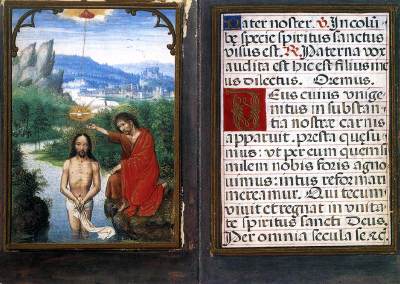 Pater noster. V. In colũ
be specie spiritus sanctus
visus est. R. Paterna vox
audita est hic est filius me
us dilectus. Oremus.
Deus cuius unige
nitus in substan
tia nostre carnis
apparuit. presta quesu
mus: ut per eum quem si
milem nobis foris agno
uimus: intus reformari
mereamur. Qui tecum
vivit et regnat in unita
te spiritus sancti Deus.
Per omnia secula se. rc.